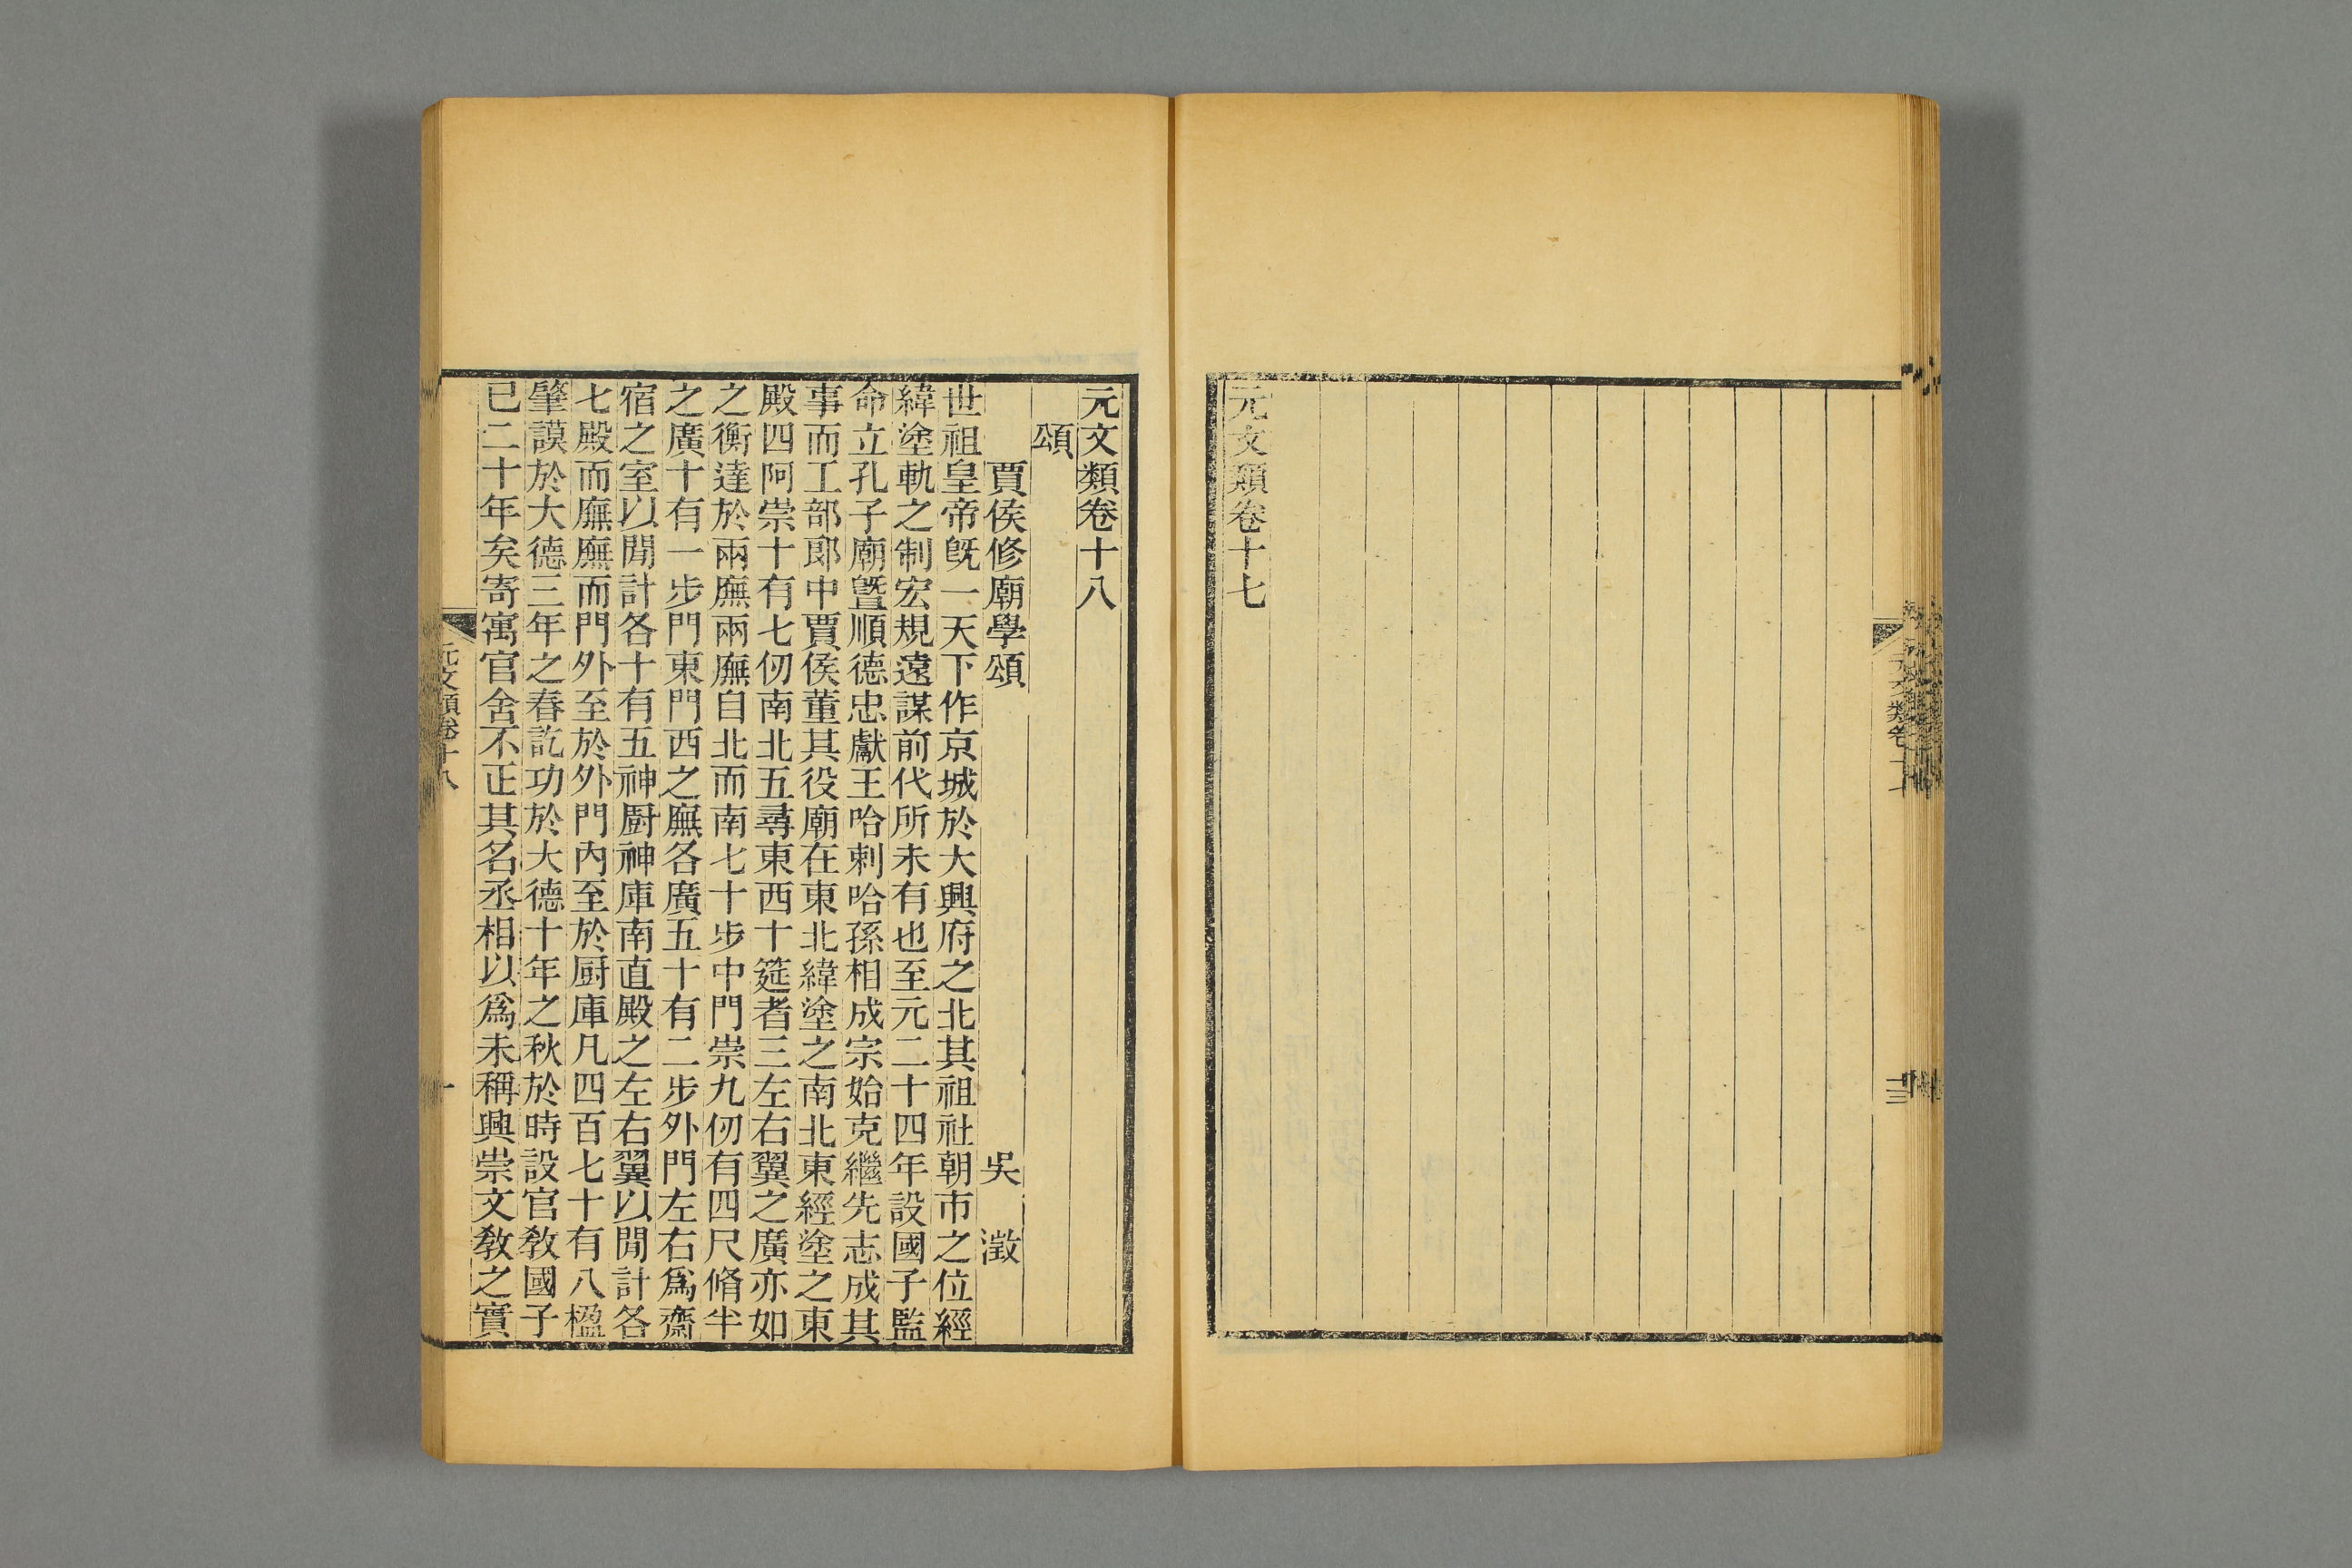 元文類卷十七
元文類卷十八
頌
賈侯修廟學頌 吳 澂
世祖皇帝旣一天下作京城於大興府之北其祖社朝市之位經
緯塗軌之制宏規遠謀前代所未有也至元二十四年設國子監
命立孔子廟曁順德忠獻王哈剌哈孫相成宗始克繼先志成其
事而工部郞中賈侯董其役廟在東北緯塗之南北東經塗之東
殿四阿崇十有七仞南北五尋東西十筵者三左右翼之廣亦如
之衡達於兩廡兩廡自北而南七十步中門崇九仞有四尺脩半
之廣十有一步門東門西之廡各廣五十有二步外門左右爲齋
宿之室以閒計各十有五神厨神庫南直殿之左右翼以閒計各
七殿而廡廡而門外至於外門內至於厨庫凡四百七十有八楹
肇謨於大德三年之春訖功於大德十年之秋於時設官敎國子
已二十年矣寄寓官舍不正其名丞相以爲未稱興崇文敎之實
元文類卷十八
一